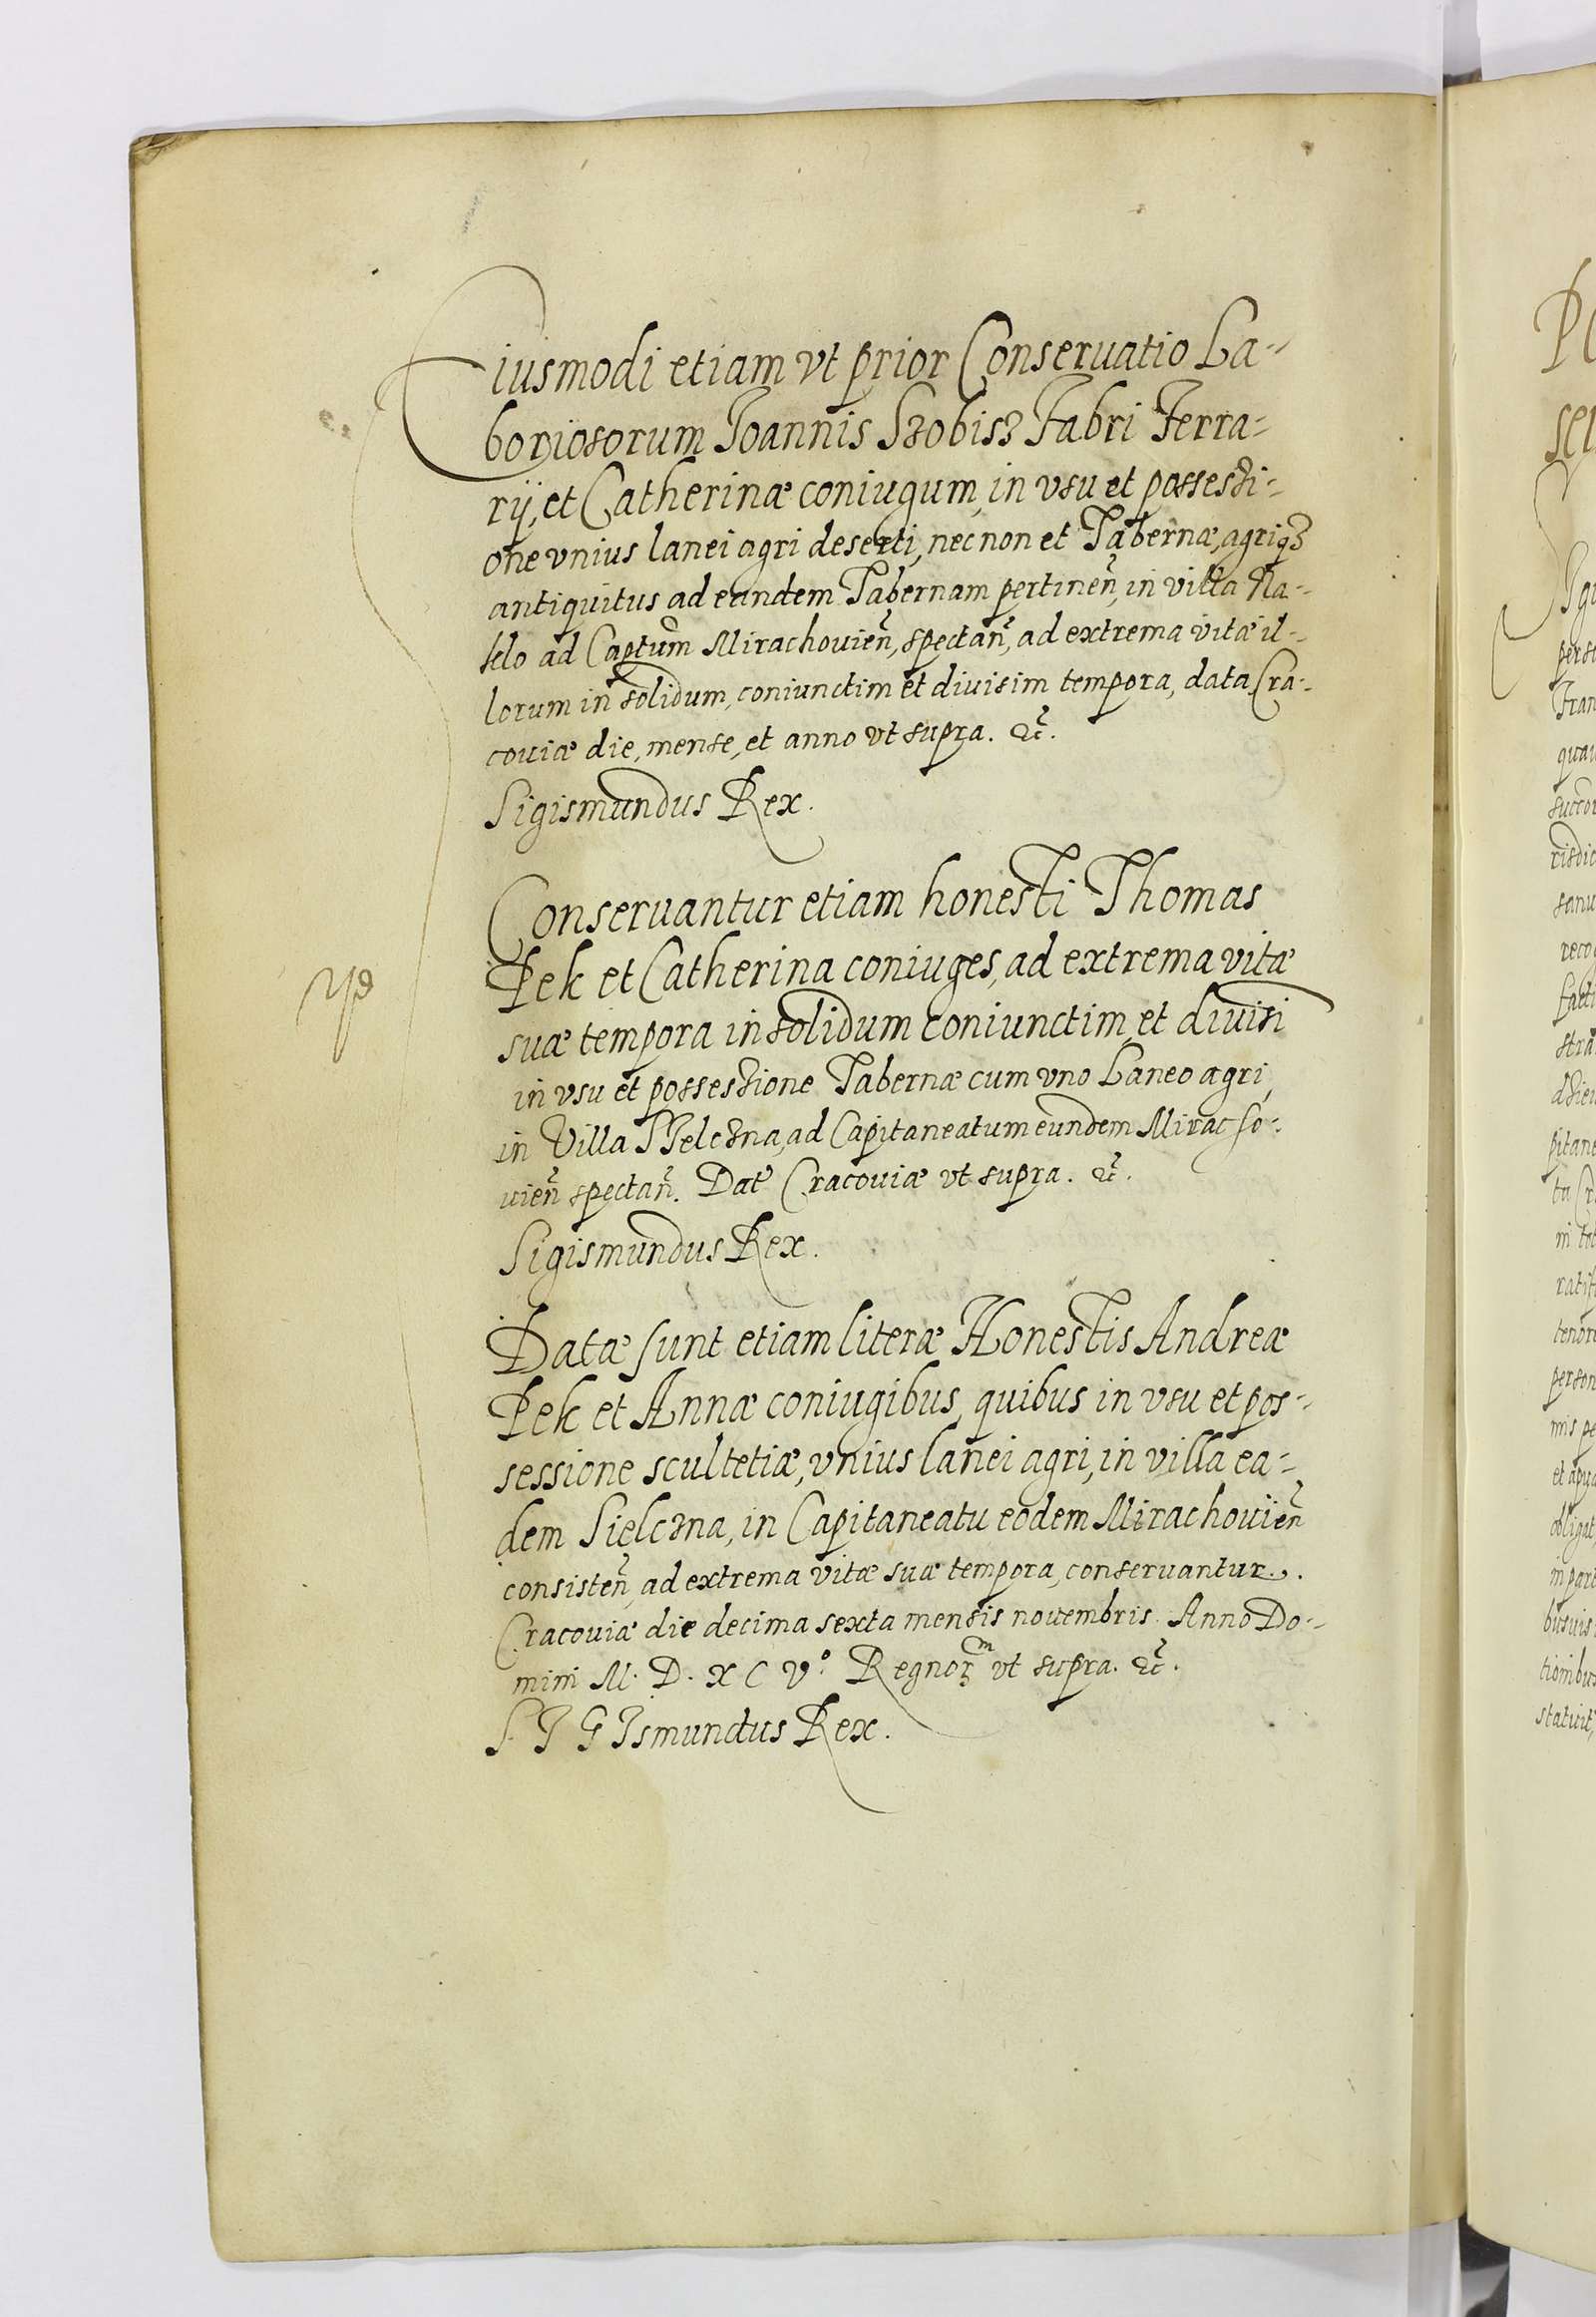 Eiusmodi etiam vt prior Conseruatio La-
boriosorum Joannis Szobisz Fabri Ferra-
rij, et Catherinæ coniugum, in vsu et possessi-
one vnius lanei agri deserti, nec non et Tabernæ, agriqz
antiquitus ad eandem Tabernam pertineñ, in villa Na-
selo ad Captum Mirachouieñ, spectañ, ad extrema vitæ il-
lorum in solidum, coniunctim et diuisim tempora, data Cra-
couiæ die, mense, et anno vt supra. &c̃.
Sigismundus Rex.
Conseruantur etiam honesti Thomas
Pek et Catherina coniuges, ad extrema vitæ
suæ tempora in solidum coniunctim, et diuisi
in vsu et possessione Tabernæ cum vno Laneo agri,
in Villa Sielczna, ad Capitaneatum eundem Miracho-
uieñ spectañ. Dat Cracouiæ vt supra. &c̃.
Sigismundus Rex.
Datæ sunt etiam literæ Honestis Andreæ
Pek et Annæ coniugibus, quibus in vsu et pos-
sessione scultetiæ, vnius lanei agri, in villa ea-
dem Sielczna, in Capitaneatu eodem Mirachouieñ
consisteñ, ad extrema vitæ suæ tempora, conseruantur.
Cracouiæ die decima sexta mensis nouembris. Anno Do-
mini M. D. X C V.º Regnorᵐ vt supra. &c̃.
SIGIsmundus Rex.